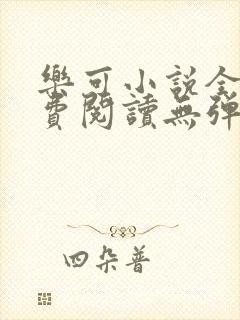 樂可小說全
費閱讀無彈
四朵普